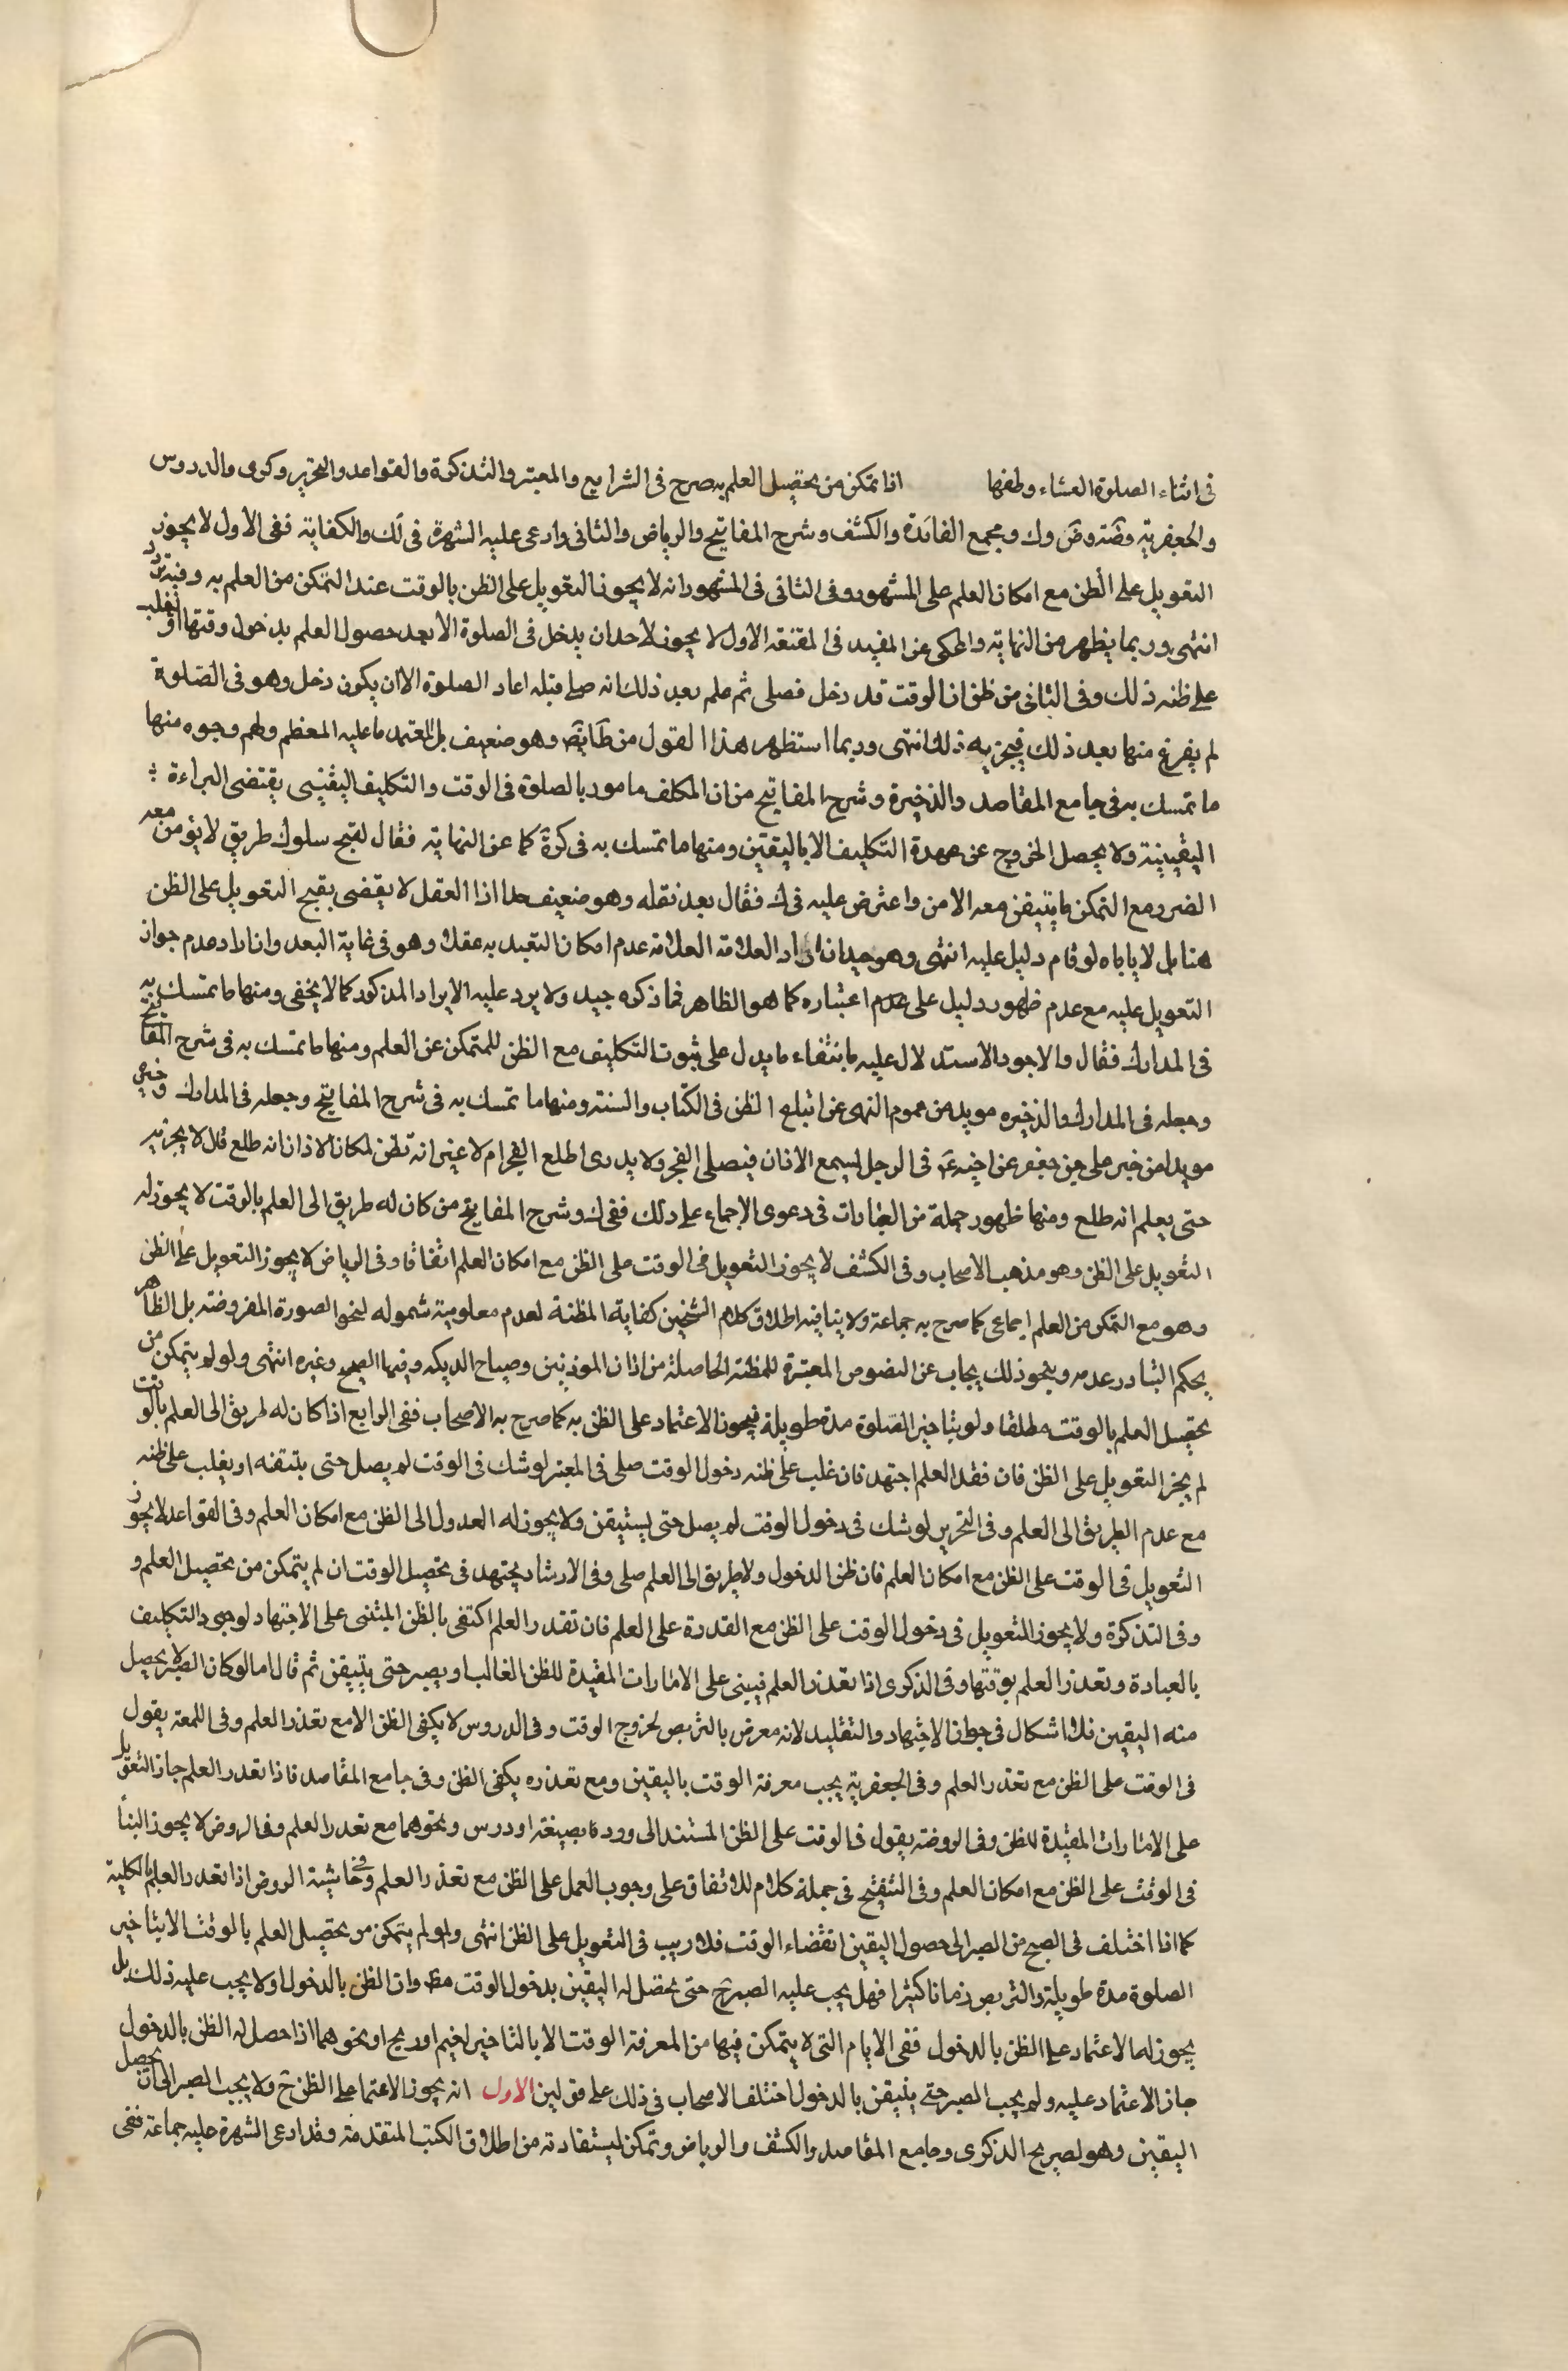 في اثناء الصلوة العشاء وطفها اذا تمكن من تحصيل العلم به صرح في الشرايع والمعتبر والتذكرة والقواعد والتحرير وكرى والدروس
والجعفرية وضة وض وك ومجمع الفائدة والكشف وشرح المفاتيح والرياض والثاني وادعى عليه الشهرة في لك والكفاية ففي الاول لا يجوز
التعويل على الظن مع امكان العلم على المشهور وفي الثاني في المشهور انه لا يجوز التعويل على الظن بالوقت عند التمكن من العلم به وفيه تردد
انتهى وربما يظهر من النهاية والمحكى عن المفيد في المقنعة الاول لا يجوز لاحد ان يدخل في الصلوة الا بعد حصول العلم بدخول وقتها او يغلب
على ظنه ذلك وفي الثاني من ظن ان الوقت قد دخل فصلى ثم علم بعد ذلك انه صلى قبله اعاد الصلوة الا ان يكون دخل وهو في الصلوة
لم يفرغ منها بعد ذلك فيجزيه ذلك انتهى وربما استظهر هذا القول من وهو ضعيف بل المعتمد ما عليه المعظم ولهم وجوه منها
ما تمسك به في جامع المقاصد والذخيرة وشرح المفاتيح من ان المكلف مامور بالصلوة في الوقت والتكليف اليقيني يقتضى البراءة
اليقينية ولا يحصل الخروج عن عهدة التكليف الا باليقين ومنها ما تمسك به في كرة كما عن النهاية فقال لقبح سلوك طريق لا يؤمن معه
الضرر مع التمكن ما يتيقن معه الامن واعترض عليه في ك فقال بعد نقله وهو ضعيف جدا اذا العقل لا يقضى بقبح التعويل على الظن
هنا بل لا ياباه لو قام دليل عليه انتهى وهو جيد ان اراد العلامة العلامة عدم امكان التعبد به عقلا وهو في غاية البعد وان اراد عدم جواز
التعويل عليه مع عدم ظهور دليل على عدم اعتباره كما هو الظاهر فما ذكره جيد ولا يرد عليه الايراد المذكور كما لا يخفى ومنها ما تمسك به
في المدارك فقال والاجود الاستدلال عليه بانتفاء ما يدل على ثبوت التكليف مع الظن للمتمكن عن العلم ومنها ما تمسك به في شرح المفاتيح
وجعله في المدارك والذخيره مويدا من عموم النهى عن اتباع الظن في الكتاب والسنة ومنها ما تمسك به في شرح المفاتيح وجعله في المدارك وخيره
مويدا من خبر على بن جعفر عن اخيه ع في الرجل يسمع الاذان فيصلى الفجر ولا يدرى اطلع الفجر ام لا غير انه يظن لمكان الاذان انه طلع قال لا يجزيه
حتى يعلم انه طلع ومنها ظهور جملة من العبارات في دعوى الاجماع على ذلك ففي ك وشرح المفاتيح من كان له طريق الى العلم بالوقت لا يجوز له
التعويل على الظن وهو مذهب الاصحاب وفي الكشف لا يجوز التعويل في الوقت على الظن مع امكان العلم اتفاقا وفي الرياض لا يجوز التعويل على الظن
وهو مع التمكن من العلم اجماعى كما صرح به جماعة ولا ينافيه اطلاق كلام الشخين كفاية المظنة لعدم معلومية شموله لنحو الصورة المفروضة بل الظاهر
بحكم التبادر عدمه وبنحو ذلك يجاب عن النصوص المعتبرة للمظنة الحاصلة من اذان الموذنين وصياح الديكه وفيها الصحيح وغيره انتهى ولو لم يتمكن من
تحصيل العلم بالوقت مطلقا ولو بتاخير الصلوة مدة طويلة فيجوز الاعتماد على الظن به كما صرح به الاصحاب ففي الرابع اذا كان له طريق الى العلم بالوقت
لم يجز التعويل على الظن فان فقد العلم اجتهد فان غلب على ظنه دخول الوقت صلى في المعتبر لو شك في الوقت لم يصل حتى يتيقنه او يغلب على ظنه
مع عدم الطريق الى العلم وفي التحرير لو شك في دخول الوقت لم يصل حتى يستيقن ولا يجوز له العدول الى الظن مع امكان العلم وفي القواعد لا يجوز
التعويل في الوقت على الظن مع امكان العلم فان ظن الدخول ولا طريق الى العلم صلى وفي الارشاد يجتهد في تحصيل الوقت ان لم يتمكن من تحصيل العلم و
وفي التذكرة ولا يجوز التعويل في دخول الوقت على الظن مع القدرة على العلم فان تعذر العلم اكتفى بالظن المبتنى على الاجتهاد لوجود التكليف
بالعبادة وتعذر العلم بوقتها وفي الذكرى اذا تعذر العلم فيبنى على الامارات المفيدة للظن الغالب او يصبر حتى يتيقن ثم قال اما لو كان الصبر لا يحصل
منه اليقين فلا اشكال في جواز الاجتهاد والتقليد لانه معرض بالتربص لخروج الوقت وفي الدروس لا يكفى الظن الا مع تعذر العلم وفي اللمعة يقول
في الوقت على الظن مع تعذر العلم وفي الجعفرية يجب معرفة الوقت باليقين ومع تعذره يكفى الظن وفي جامع المقاصد فاذا تعذر العلم جاز التعويل
على الامارات المفيدة للظن وفي الروضة يقول في الوقت على الظن المستند الى ورد بصنعة او درس ونحوهما مع تعذر العلم وفي الروض لا يجوز البناء
في الوقت على الظن مع امكان العلم وفي التنقيح في جملة كلام للاتفاق على وجوب العمل على الظن مع تعذر العلم وفي حاشية الروض اذا تعذر العلم بالكلية
كما اذا اختلف في الصبح من الصبر الى حصول اليقين انقضاء الوقت فلا ريب في التعويل على الظن انتهى ولو لم يتمكن من تحصيل العلم بالوقت الا بتاخير
الصلوة مدة طويلة والتربص زمانا كثيرا فهل يجب عليه الصبر ح حتى يحصل له اليقين بدخول الوقت مط وان الظن بالدخول او لا يجب عليه ذلك بل
يجوز له الاعتماد على الظن بالدخول ففي الايام التى لا يتمكن فيها من المعرفة الوقت الا بالتاخير لغيم او ريح او نحوهما اذا حصل له الظن بالدخول
جاز الاعتماد عليه ولم يجب الصبر حتى يتيقن بالدخول اختلف الاصحاب في ذلك على قولين الاول انه يجوز الاعتماد على الظن ح ولا يجب الصبر الى ان يحصل
اليقين وهو لصريح الذكرى وجامع المقاصد والكشف والرياض وتمكن ليستفادته من اطلاق الكتب المتقدمة وقد ادعى الشهرة عليه جماعة ففي